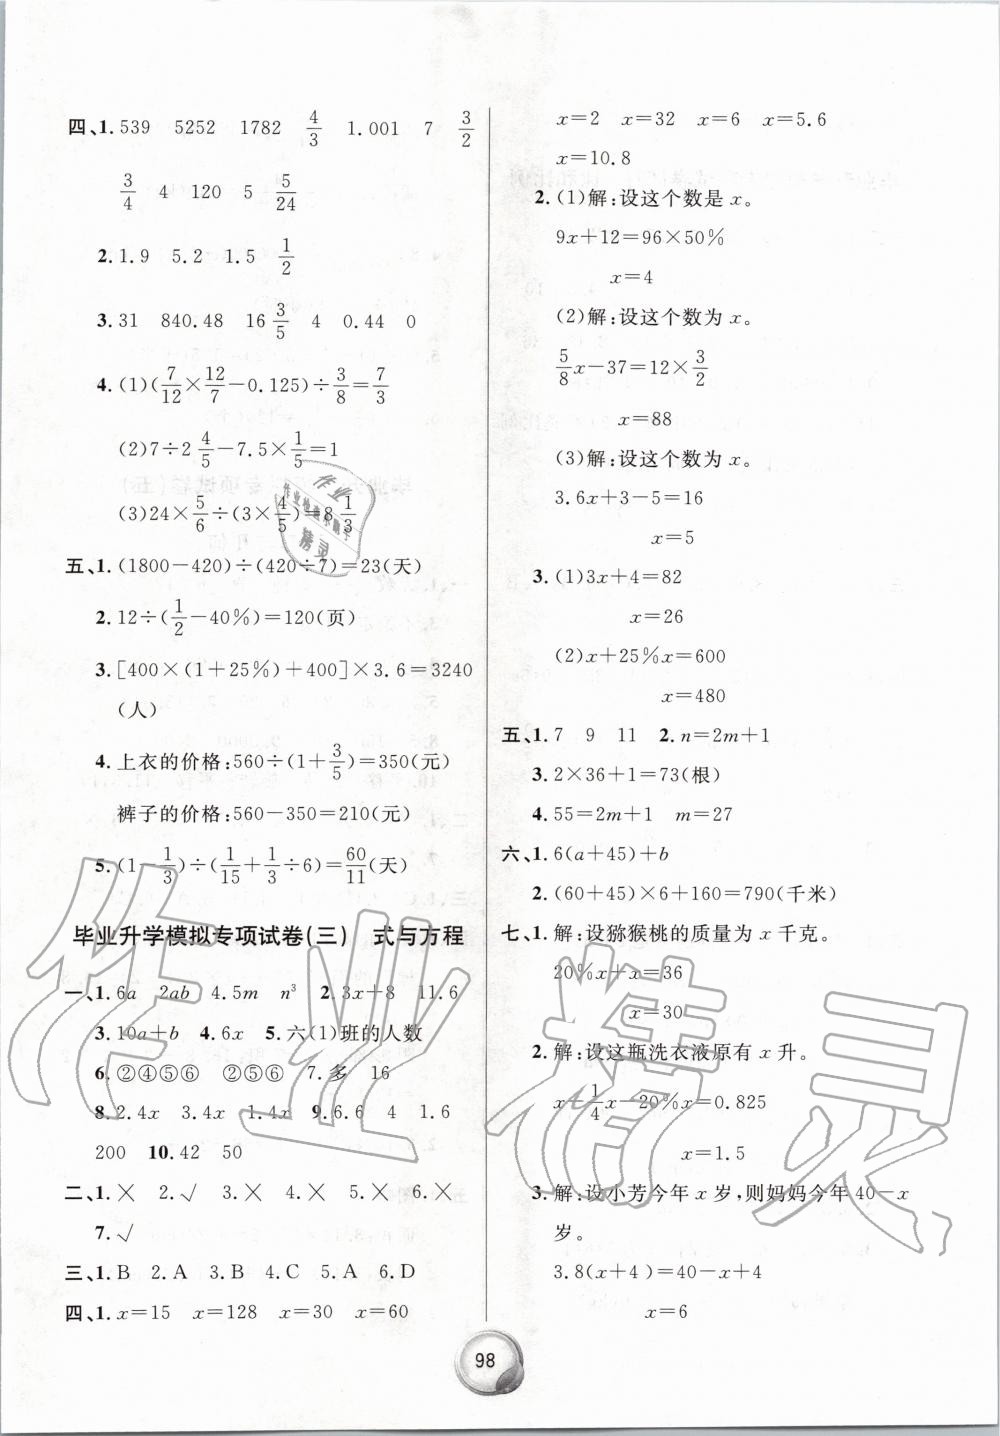 四、1. 539 5252 1782 4/3 1.001 7 3/2
3/4 4 120 5 5/24
2. 1.9 5.2 1.5 1/2
3. 31 840.48 16 3/5 4 0.44 0
4. (1)(7/12×12/7−0.125)÷3/8=7/3
(2)7÷2 4/5−7.5×1/5=1
(3)24×5/6÷(3×4/5)=8 1/3
五、1. (1800−420)÷(420÷7)=23(天)
2. 12÷(1/2−40%)=120(页)
3. [400×(1+25%)+400]×3.6=3240
(人)
4. 上衣的价格:560÷(1+3/5)=350(元)
裤子的价格:560−350=210(元)
5. (1−1/3)÷(1/15+1/3÷6)=60/11(天)
毕业升学模拟专项试卷(三) 式与方程
一、1. 6a 2ab 4.5m n³ 2. 3x+8 11.6
3. 10a+b 4. 6x 5. 六(1)班的人数
6. ②④⑤⑥ ②⑤⑥ 7. 多 16
8. 2.4x 3.4x 1.4x 9. 6.6 4 1.6
200 10. 42 50
二、1. × 2. √ 3. × 4. × 5. × 6. ×
7. √
三、1. B 2. A 3. B 4. C 5. A 6. D
四、1. x=15 x=128 x=30 x=60
x=2 x=32 x=6 x=5.6
x=10.8
2. (1)解:设这个数是 x。
9x+12=96×50%
x=4
(2)解:设这个数为 x。
5/8x−37=12×3/2
x=88
(3)解:设这个数为 x。
3.6x+3−5=16
x=5
3. (1)3x+4=82
x=26
(2)x+25%x=600
x=480
五、1. 7 9 11 2. n=2m+1
3. 2×36+1=73(根)
4. 55=2m+1 m=27
六、1. 6(a+45)+b
2. (60+45)×6+160=790(千米)
七、1. 解:设猕猴桃的质量为 x 千克。
20%x+x=36
x=30
2. 解:设这瓶洗衣液原有 x 升。
x−1/4x−20%x=0.825
x=1.5
3. 解:设小芳今年 x 岁,则妈妈今年 40−x
岁。
3.8(x+4)=40−x+4
x=6
98
作业精灵